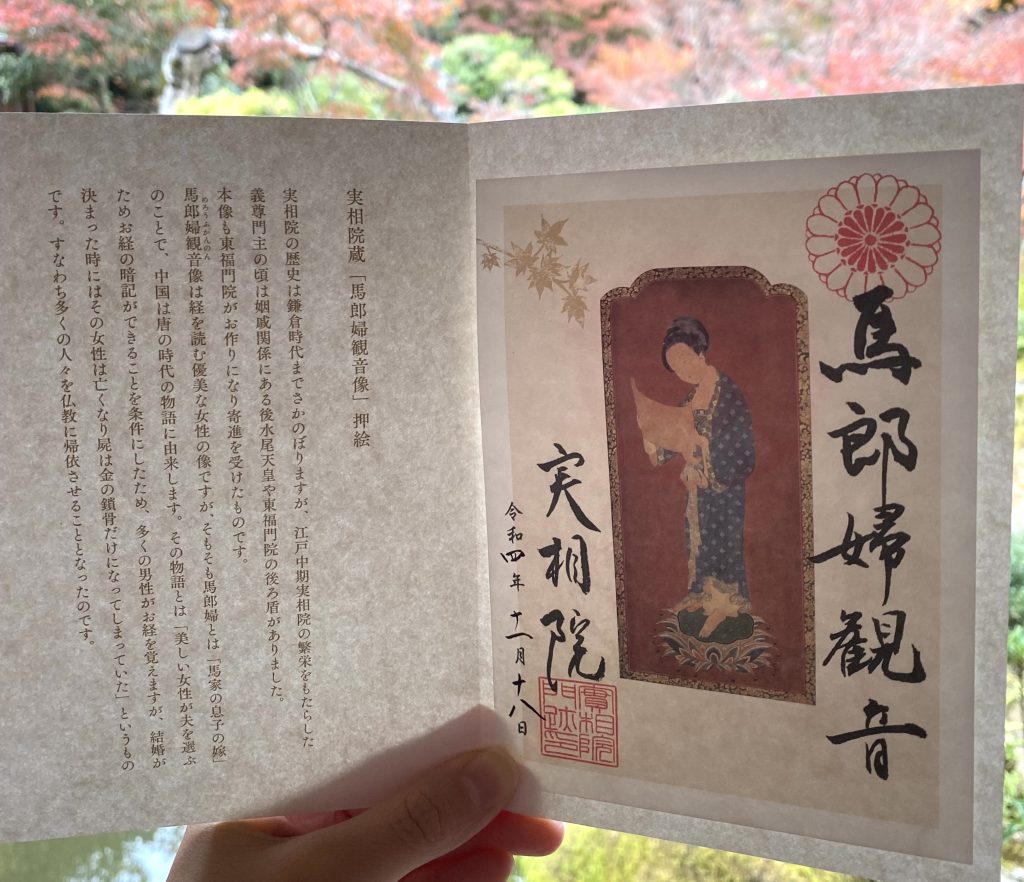 馬郎婦観音
実相院
令和四年 十一月十八日
實相院
門跡印
実相院蔵「馬郎婦観音像」押絵
実相院の歴史は鎌倉時代までさかのぼりますが、江戸中期実相院の繁栄をもたらした
義尊門主の頃は姻戚関係にある後水尾天皇や東福門院の後ろ盾がありました。
本像も東福門院がお作りになり寄進を受けたものです。
めろうふかんのん
馬郎婦観音像は経を読む優美な女性の像ですが、そもそも馬郎婦とは「馬家の息子の嫁」
のことで、中国は唐の時代の物語に由来します。その物語とは「美しい女性が夫を選ぶ
ためお経の暗記ができることを条件にしたため、多くの男性がお経を覚えますが、結婚が
決まった時にはその女性は亡くなり屍は金の鎖骨だけになってしまっていた」というもの
です。すなわち多くの人々を仏教に帰依させることとなったのです。